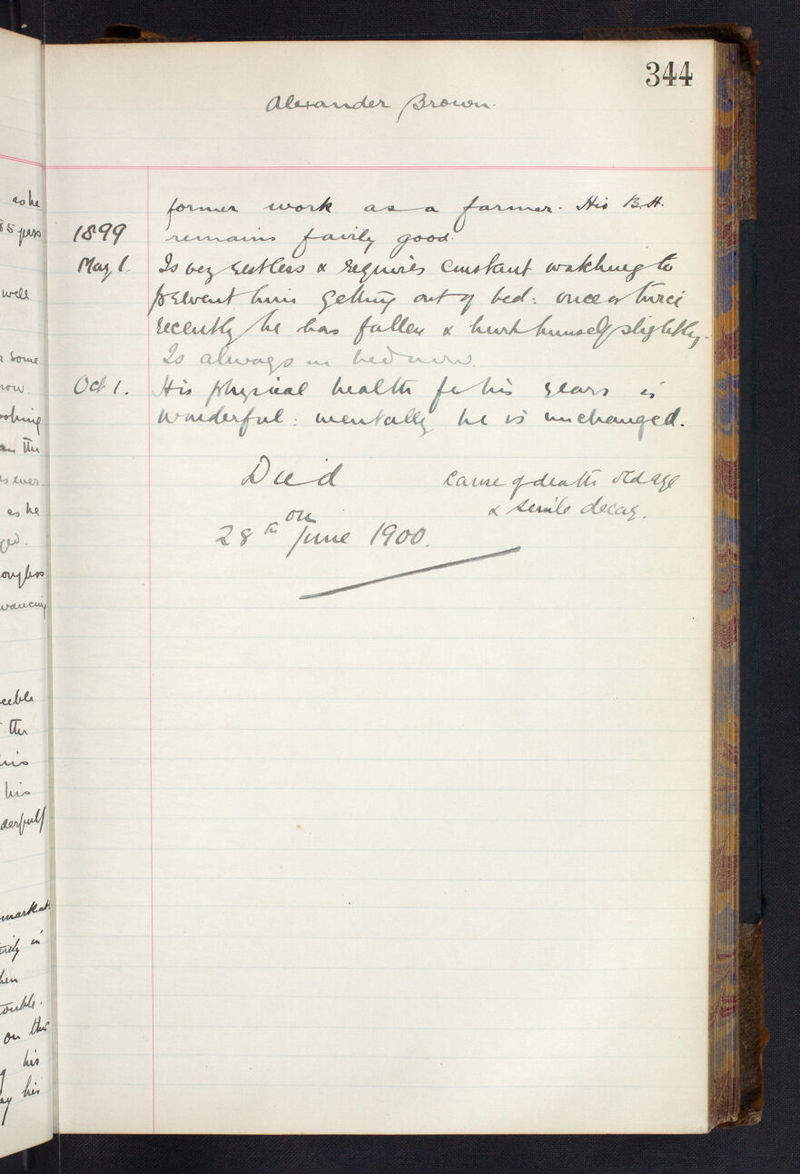 344
Alexander Brown.
former work as a farmer. His B.H.
1899 remains fairly good.
May 1. Is very restless & requires constant watching to
prevent him getting out of bed: once or twice
recently he has fallen & hurt himself slightly.
Is always in bed now.
Oct 1. His physical health for his years is
wonderful: mentally he is unchanged.
Died cause of death old age
on & senile decay.
28th June 1900.
as he
85 years
well
some
now.
the
as he
the
his
his
in
on this
his
his